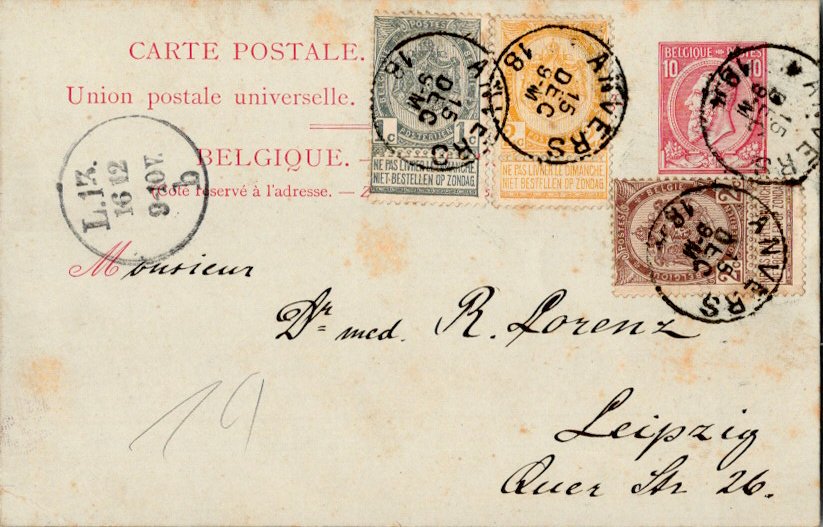 CARTE POSTALE.
Union postale universelle.
BELGIQUE. –
(Côté réservé à l'adresse. — Z
1c 1c
POSTES
NE PAS LIVRER LE DIMANCHE
NIET-BESTELLEN OP ZONDAG.
NE PAS LIVRER LE DIMANCHE
NIET-BESTELLEN OP ZONDAG.
BELGIQUE
10 10
ANVERS
15
DEC
9-M
18
ANVERS
15
DEC
9-M
18
ANVERS
15
DEC
9-M
18
BELGIE
POSTES
2
L.13.
16 12
9-10V.
b
Monsieur
Dr med. R. Lorenz
Leipzig
Quer Str 26.
19